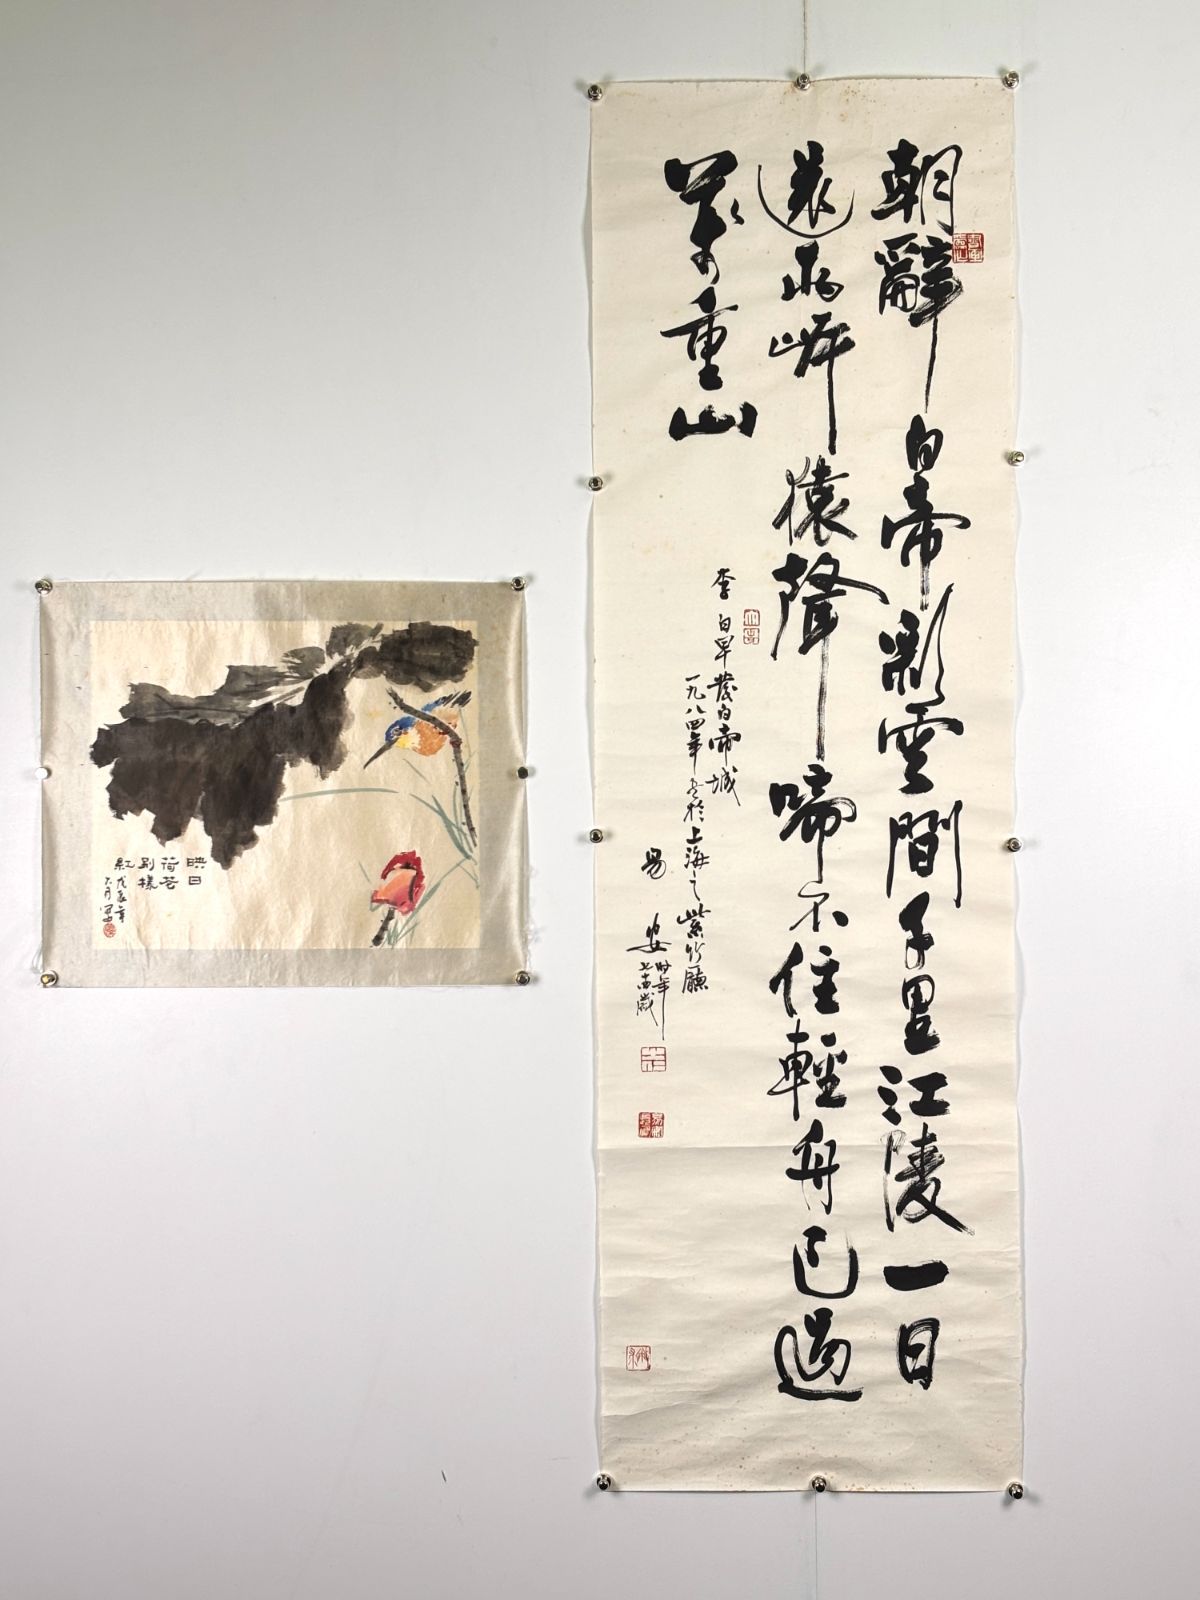 朝辭白帝彩雲間千里江陵一日
還兩岸猿聲啼不住輕舟已過
萬重山
李白早發白帝城
一九八四年書於上海之紫竹廳
易安時年七十四歲
映日
荷花
別樣
紅
戊辰年
六月